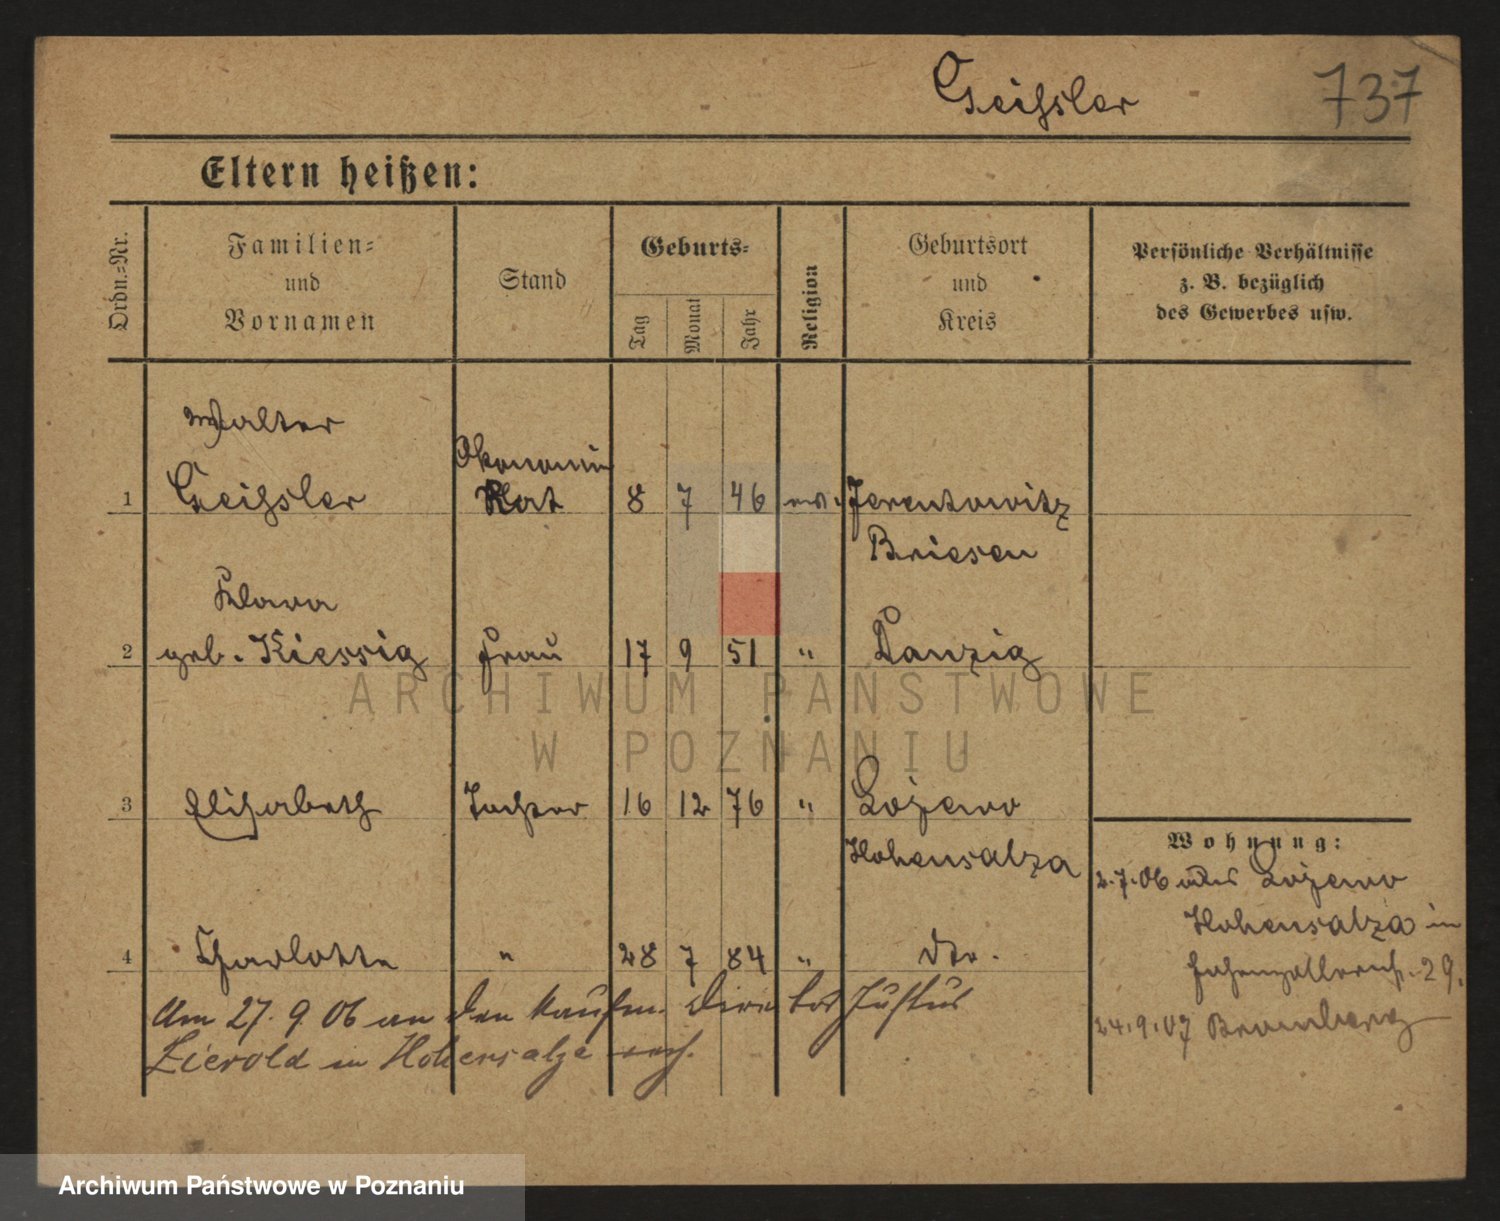 Geißler 737
Eltern heißen:
Ordn.-Nr.
Familien-
und
Vornamen
Stand
Geburts-
Tag
Monat
Jahr
Religion
Geburtsort
und
Kreis
Persönliche Verhältnisse
z. B. bezüglich
des Gewerbes usw.
Walter
Ökonomie
1 Geißler Rat 8 7 46 ev. Jerentowitz
Briesen
Klara
2 geb. Kiessig Frau 17 9 51 " Danzig
3 Elisabeth Tochter 16 12 76 " Lojewo
Hohensalza
4 Charlotte " 28 7 84 " dto.
Am 27. 9 06 an den kaufm. Direktor Justus
Zierold in Hohensalza verh.
Wohnung:
2.7.06 aus Lojewo
Hohensalza in
Hohenzollernst. 29.
24.9.07 Bromberg
ARCHIWUM PAŃSTWOWE
W POZNANIU
Archiwum Państwowe w Poznaniu